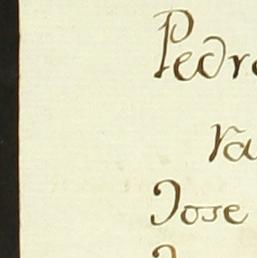 Pedro
ra
Jose